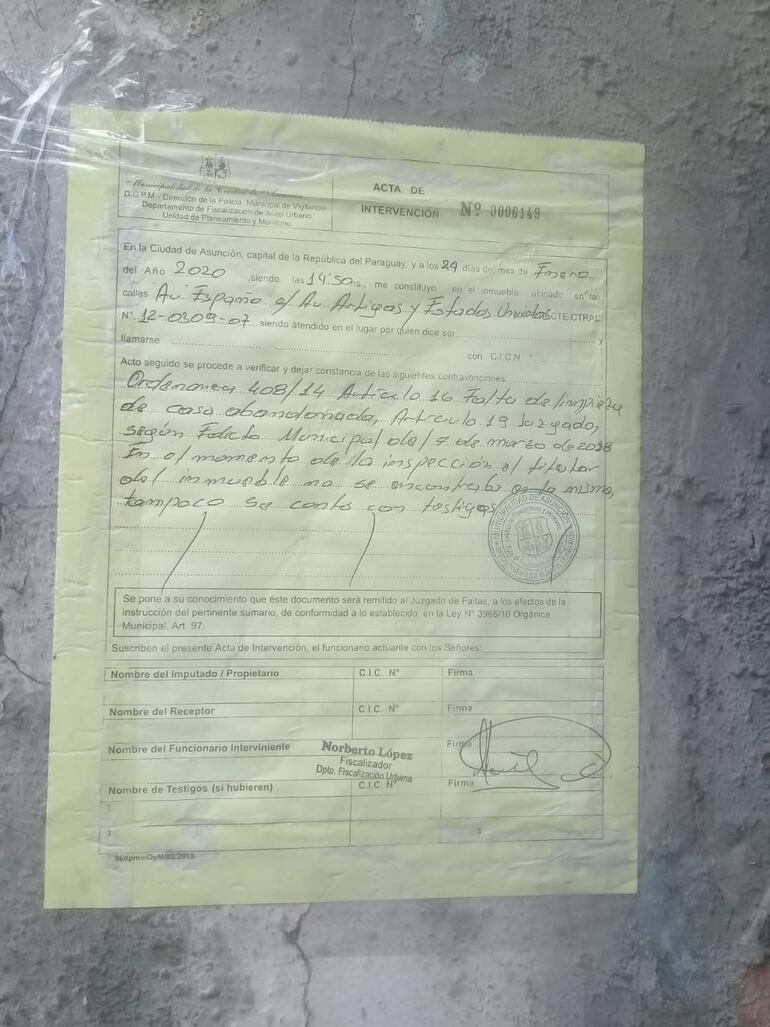 Municipalidad de la Ciudad de Asunción
D.G.P.M - Dirección de la Policía Municipal de Vigilancia
Departamento de Fiscalización de Aseo Urbano
Unidad de Planeamiento y Monitoreo
ACTA DE
INTERVENCIÓN Nº 0006149
En la Ciudad de Asunción, capital de la República del Paraguay, y a los 24 días del mes de Enero
del Año 2020 ,siendo las 14:50 hs., me constituyo en el inmueble ubicado en las
calles Av. España e/ Av. Artigas y Estados Unidos CTE.CTRAL
N° 12-0309-07 siendo atendido en el lugar por quien dice ser y
llamarse con C.I.C.N °
Acto seguido se procede a verificar y dejar constancia de las siguientes contravenciones
Ordenanza 408/14 Artículo 16 Falta de limpieza
de casa abandonada, Artículo 19 Juzgado,
según Edicto Municipal del 7 de marzo de 2018
En el momento de la inspección el titular
del inmueble no se encontraba en la misma,
tampoco se conto con testigos
MUNICIPALIDAD DE ASUNCIÓN
Se pone a su conocimiento que éste documento será remitido al Juzgado de Faltas, a los efectos de la
instrucción del pertinente sumario, de conformidad a lo establecido en la Ley N° 3966/10 Orgánica
Municipal, Art. 97.
Suscriben el presente Acta de Intervención, el funcionario actuante con los Señores:
Nombre del Imputado / Propietario C.I.C. N° Firma
Nombre del Receptor C.I.C. N° Firma
Nombre del Funcionario Interviniente Norberto López Firma
Fiscalizador
Dpto. Fiscalización Urbana
Nombre de Testigos (si hubieren) C.I.C. N° Firma
1
2
06dpmv/OyM/02/2015